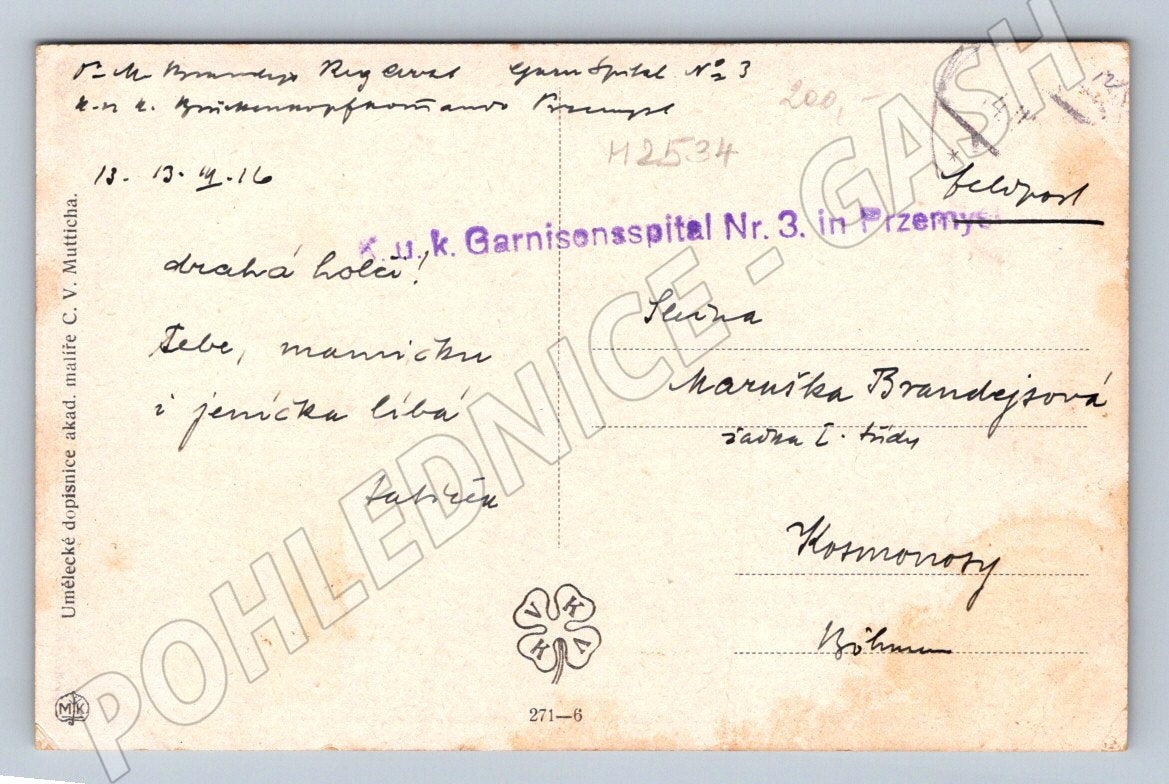 Dr M Brandejs Reg Garn Spital No 3
k. u. k. Brückenkopfkom̄ando Przemysl
200,-
H2534
13. VI. 16
Feldpost
K. u. k. Garnisonsspital Nr. 3. in Przemysl
drahá holči!
Slečna
Tebe, mamičku
Maruška Brandejsová
i jeníčka líbá
žačka I. třídy
tatíček
Kosmonosy
Böhmen
Umělecké dopisnice akad. malíře C. V. Mutticha.
V K K V
MK
271—6
POHLEDNICE - GASH